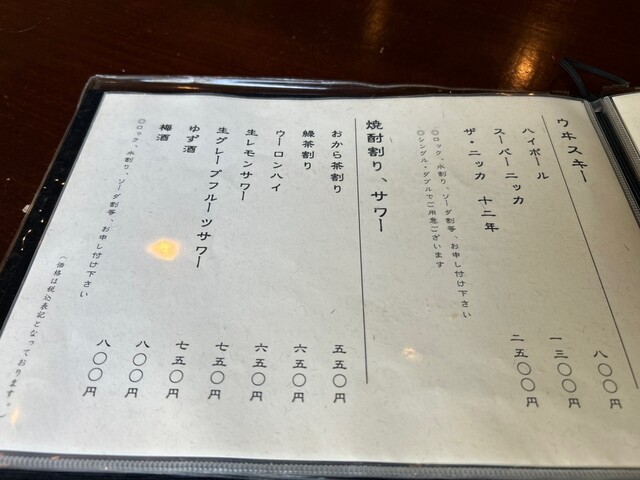 ウヰスキー
ハイボール　八〇〇円
スーパーニッカ　一三〇〇円
ザ・ニッカ　十二年　二五〇〇円
◎ロック、水割り、ソーダ割等、お申し付け下さい
◎シングル・ダブルでご用意ございます
焼酎割り、サワー
おから茶割り　五五〇円
緑茶割り　六五〇円
ウーロンハイ　六五〇円
生レモンサワー　七五〇円
生グレープフルーツサワー　七五〇円
ゆず酒　八〇〇円
梅酒　八〇〇円
◎ロック、水割り、ソーダ割等、お申し付け下さい
（価格は税込表記となっております。）